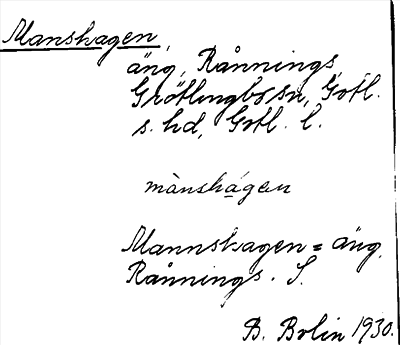 Manshagen,
äng, Rånnings,
Grötlingbo sn, Gotl.
s. hd, Gotl. l.
mànshágen
Mannshagen = äng.
Rånnings. S.
B. Bolin 1930.